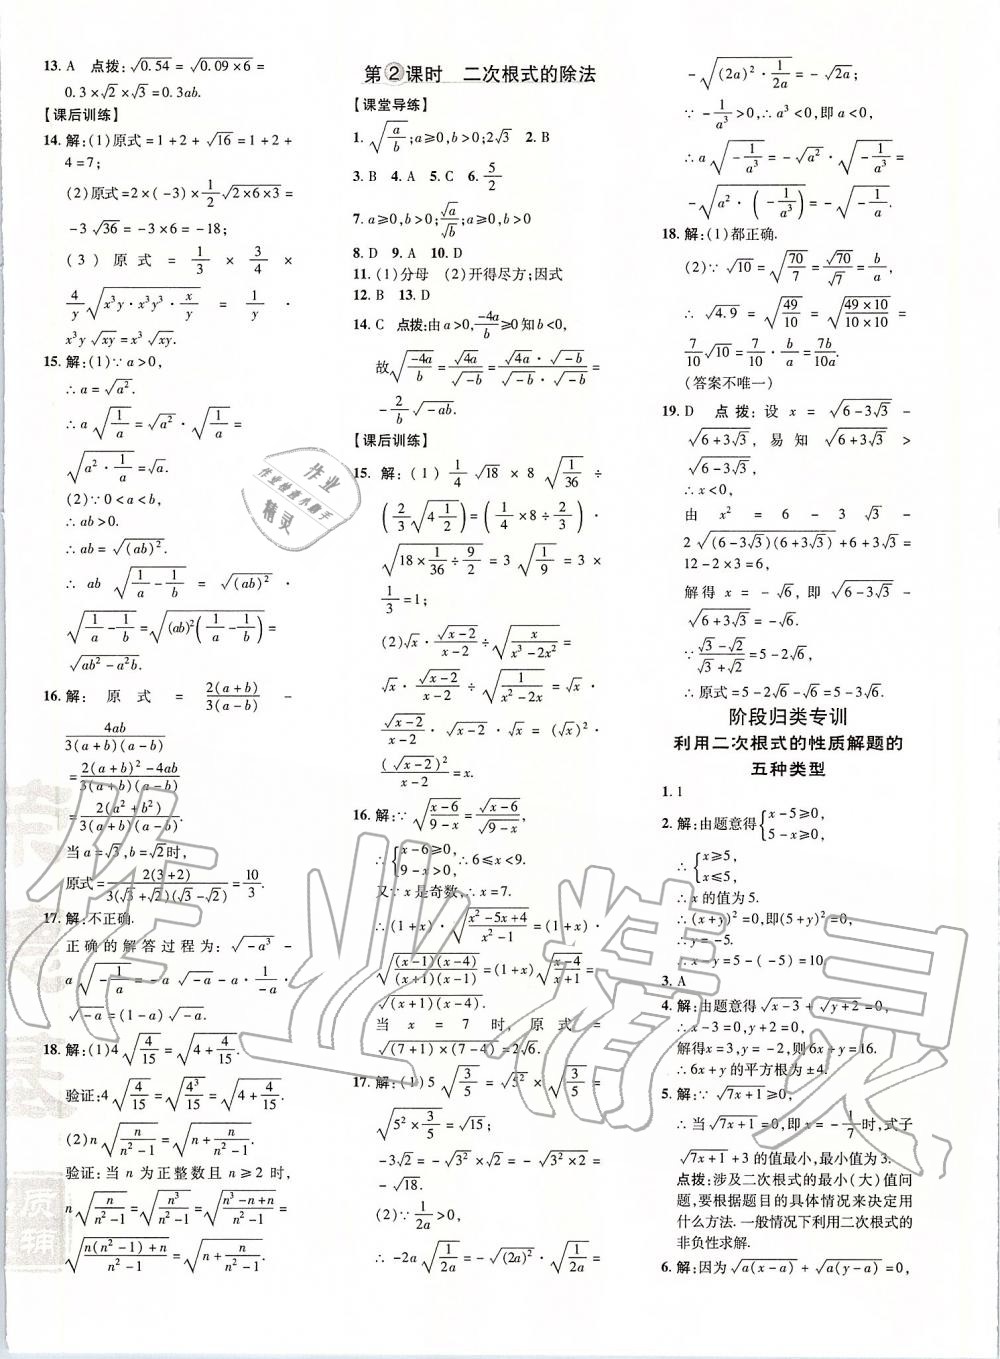 13. A 点拨:√0.54 = √(0.09×6) =
0.3×√2×√3=0.3ab.
【课后训练】
14. 解:(1)原式=1+2+√16=1+2+
4=7;
(2)原式=2×(-3)×1/2√(2×6×3)=
-3√36=-3×6=-18;
(3)原式 = 1/3 × 3/4 ×
4/y√(x³y·x³y³·x/y) = 1/y ·
x³y√xy=x³√xy.
15. 解:(1)∵a>0,
∴a=√a².
∴a√(1/a)=√a²·√(1/a)=
√(a²·1/a)=√a.
(2)∵0<a<b,
∴ab>0.
∴ab=√(ab)².
∴ab√(1/a-1/b) = √(ab)² ·
√(1/a-1/b)=√((ab)²(1/a-1/b))=
√(ab²-a²b).
16. 解:原式 = 2(a+b)/3(a-b) -
4ab/3(a+b)(a-b)
=(2(a+b)²-4ab)/3(a+b)(a-b)
=2(a²+b²)/3(a+b)(a-b).
当a=√3,b=√2时,
原式=2(3+2)/3(√3+√2)(√3-√2)=10/3.
17. 解:不正确.
正确的解答过程为:√(-a³) -
a√(-1/a) = -a√-a - a·√-a/-a =
√-a=(1-a)√-a.
18. 解:(1)4√(4/15)=√(4+4/15).
验证:4√(4/15)=√(4³/15)=√(4+4/15).
(2)n√(n/(n²-1))=√(n+n/(n²-1)).
验证:当n为正整数且n≥2时,
n√(n/(n²-1))=√(n³/(n²-1))=√((n³-n+n)/(n²-1))=
√((n(n²-1)+n)/(n²-1))=√(n+n/(n²-1)).
第2课时 二次根式的除法
【课堂导练】
1. √(a/b);a≥0,b>0;2√3 2. B
3. B 4. A 5. C 6. 5/2
7. a≥0,b>0;√a/√b;a≥0,b>0
8. D 9. A 10. D
11. (1)分母 (2)开得尽方;因式
12. B 13. D
14. C 点拨:由a>0,-4a/b≥0知b<0,
故√(-4a/b)=√4a/√-b=(√4a·√-b)/(√-b·√-b)=
-2/b√-ab.
【课后训练】
15. 解:(1)1/4√18×8√(1/36)÷
(2/3√(4 1/2))=(1/4×8÷2/3)·
√(18×1/36÷9/2)=3√(1/9)=3×
1/3=1;
(2)√x·√(x-2)/(x-2)÷√(x/(x³-2x²))=
√x·√(x-2)/(x-2)÷√(1/(x²-2x))=
√(x-2)/(x-2)·√x·√(x-2)·√x=
x(√(x-2))²/(x-2)=x.
16. 解:∵√((x-6)/(9-x))=√(x-6)/√(9-x),
∴{x-6≥0, 9-x>0,∴6≤x<9.
又∵x是奇数,∴x=7.
∴(1+x)·√((x²-5x+4)/(x²-1))=(1+x)·
√((x-1)(x-4)/(x+1)(x-1))=(1+x)√((x-4)/(x+1))=
√(x+1)(x-4).
当x=7时,原式=
√(7+1)×(7-4)=2√6.
17. 解:(1)5√(3/5)=√5²×√(3/5)=
√(5²×3/5)=√15.
-3√2=-√3²×√2=-√(3²×2)=
-√18.
(2)∵1/2a>0,
∴-2a√(1/2a)=-√(2a)²·√(1/2a)=
-√((2a)²·1/2a)=-√2a;
∵-1/a³>0,∴a³<0,即a<0,
∴a√(-1/a³)=-√a²·√(-1/a³)=
-√(a²·(-1/a³))=-√(-1/a).
18. 解:(1)都正确.
(2)∵√10=√(70/7)=√70/√7=b/a,
∴√4.9=√(49/10)=√(49×10)/10=
7/10√10=7/10·b/a=7b/10a.
(答案不唯一)
19. D 点拨:设x=√(6-3√3) -
√(6+3√3),易知√(6+3√3) >
√(6-3√3),
∴x<0,
由 x² = 6 - 3√3 -
2√((6-3√3)(6+3√3))+6+3√3=
12-2×3=6,
解得x=-√6,即√(6-3√3) -
√(6+3√3)=-√6,
∵(√3-√2)/(√3+√2)=5-2√6,
∴原式=5-2√6-√6=5-3√6.
阶段归类专训
利用二次根式的性质解题的
五种类型
1. 1
2. 解:由题意得{x-5≥0, 5-x≥0,
∴{x≥5, x≤5,
∴x的值为5.
∴(x+y)²=0,即(5+y)²=0.
∴y=-5.
∴x-y=5-(-5)=10
3. A
4. 解:由题意得√(x-3)+√(y-2)=0,
∴x-3=0,y-2=0,
解得x=3,y=-2.
∴6x+y的平方根为±4.
5. 解:∵√(7x+1)≥0,
∴当√(7x+1)=0,即x=-1/7时,式子
√(7x+1)+3的值最小,最小值为3.
点拨:涉及二次根式的最小(大)值问
题,要根据题目的具体情况来决定用
什么方法.一般情况下利用二次根式的
非负性求解.
6. 解:因为√a(x-a)+√a(y-a)=0,
作业精灵
作业检查小帮手
作业
精灵
质
辅